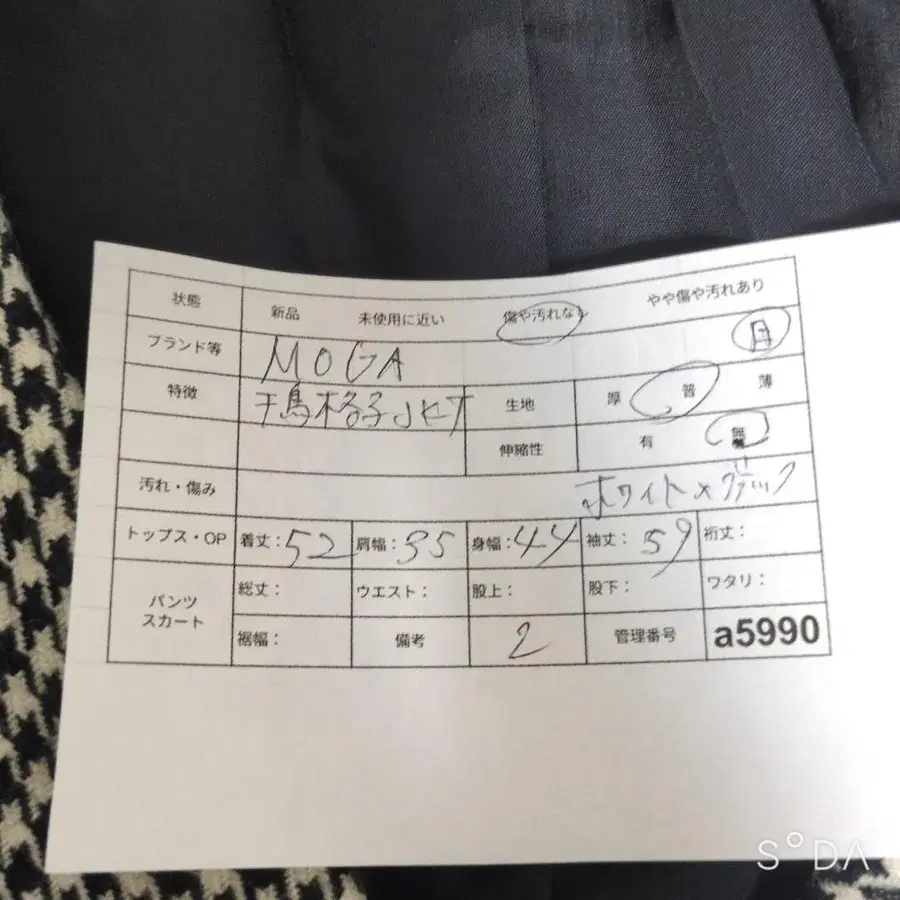 状態 新品 未使用に近い 傷や汚れなし やや傷や汚れあり
ブランド等 MOGA 日
特徴 千鳥格子JKT 生地 厚 普 薄
伸縮性 有 無
汚れ・傷み ホワイト×ブラック
トップス・OP 着丈:52 肩幅:35 身幅:44 袖丈:59 裄丈:
パンツ スカート 総丈: ウエスト: 股上: 股下: ワタリ:
裾幅: 備考 2 管理番号 a5990
SODA